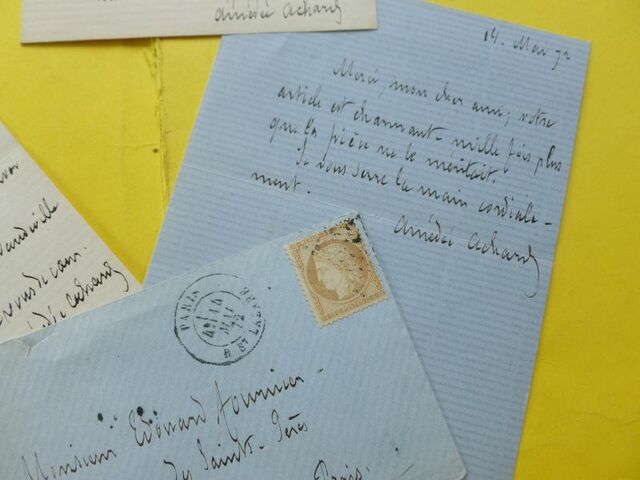 Amédée Achard
14. Mai 72
Merci, mon cher ami; votre
article est charmant mille fois plus
que la pièce ne le méritait.
Je vous serre la main cordiale-
ment.
Amédée Achard
vaudeville
vous de
Amédée Achard
PARIS
MAI
72
R. ST LAZARE
Monsieur Edouard Fournier
des Saints-Pères
Paris